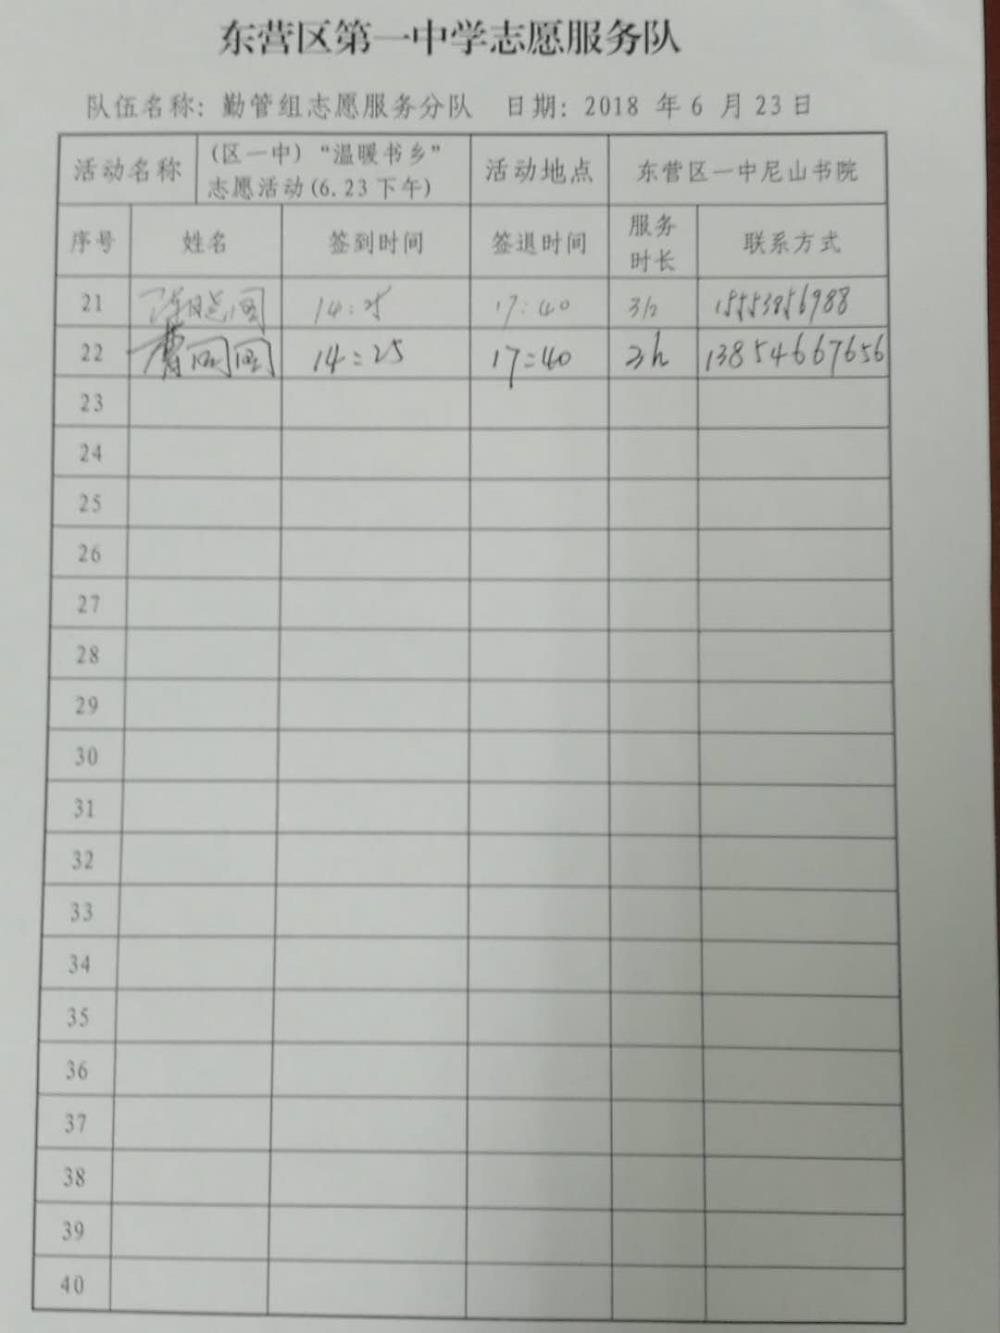 东营区第一中学志愿服务队
队伍名称: 勤管组志愿服务分队 日期: 2018 年 6 月 23 日
活动名称 (区一中) “温暖书乡” 志愿活动(6.23下午) 活动地点 东营区一中尼山书院
序号 姓名 签到时间 签退时间 服务时长 联系方式
21 14:25 17:40 3h 15553856988
22 14:25 17:40 3h 13854667656
23
24
25
26
27
28
29
30
31
32
33
34
35
36
37
38
39
40